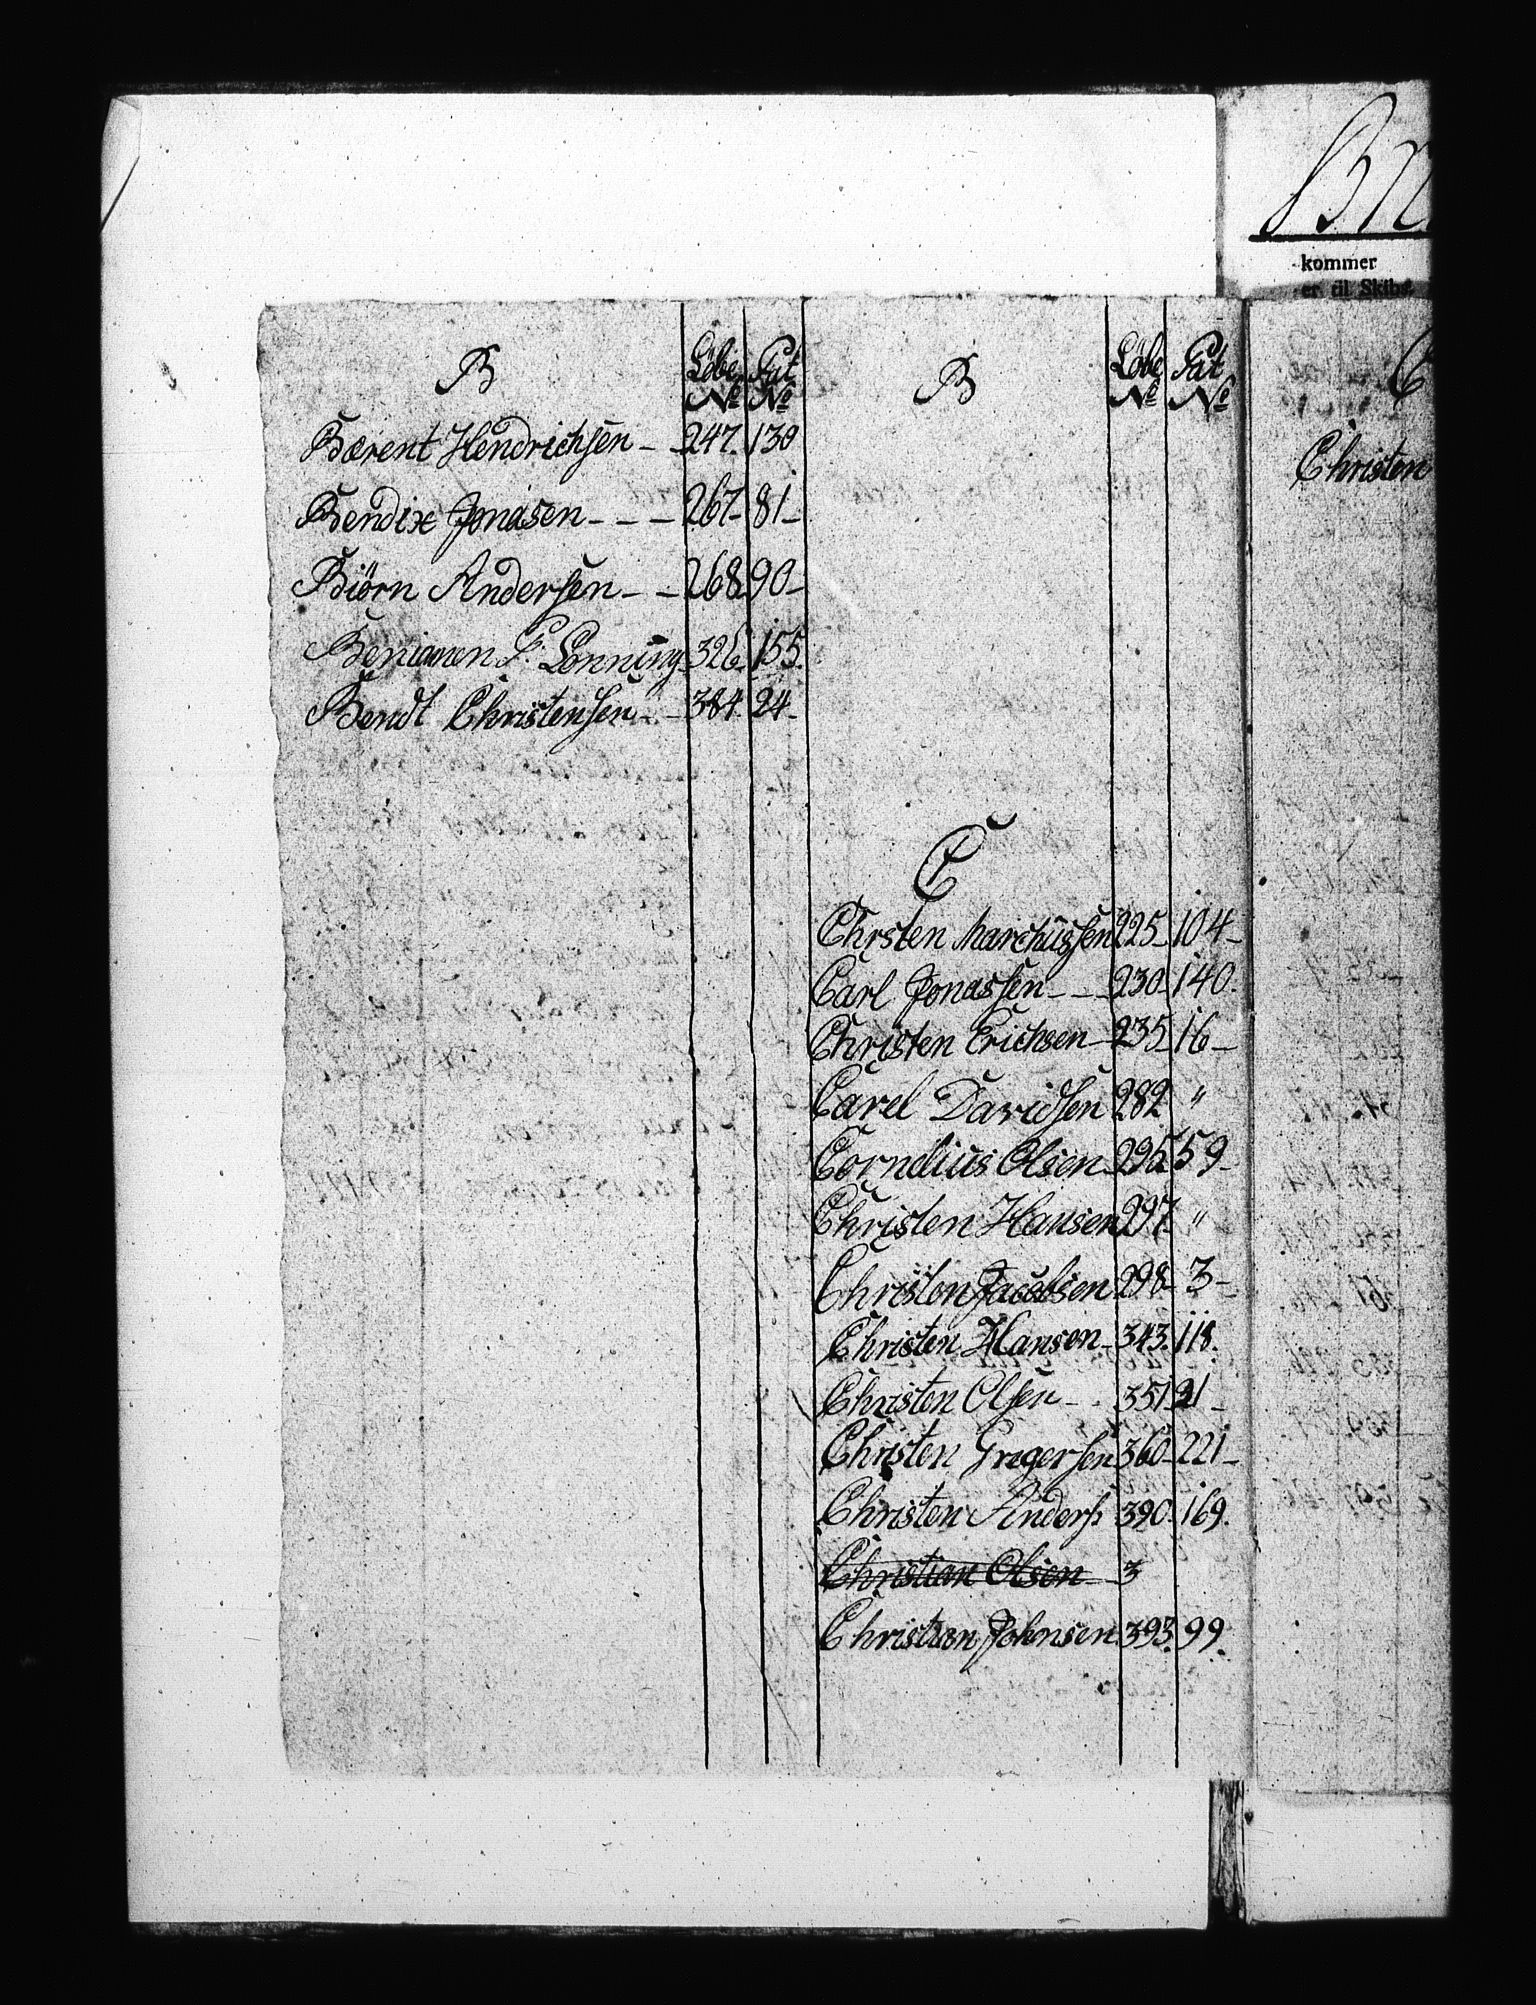 B Löbe No Pat No
Bærent Hendrichsen - - 247. 130
Bendix Jonasen - - - 267- 81-
Biörn Andersen - - 268. 90-
Beniamen P. Lonning 326. 155.
Bendt Christensen - - 384. 24-
B Löbe No Pat No
C
Chrsten Marchussen 225- 104-
Carl Jonassen - - - 230- 140.
Christen Erichsen - 235- 16-
Carel Davidsen 282 "
Cornelius Olsen - 295. 59-
Christen Hansen 297. "
Christen Jacobsen 298- 3-
Christen Hansen - 343. 118.
Christen Olsen - - 351. 21-
Christen Gregersen 360- 221-
Christen Anders: 390. 169.
Christian Olsen - 3
Christian Johnsen 393. 99.
kommer
er til Skibs
C
Christen